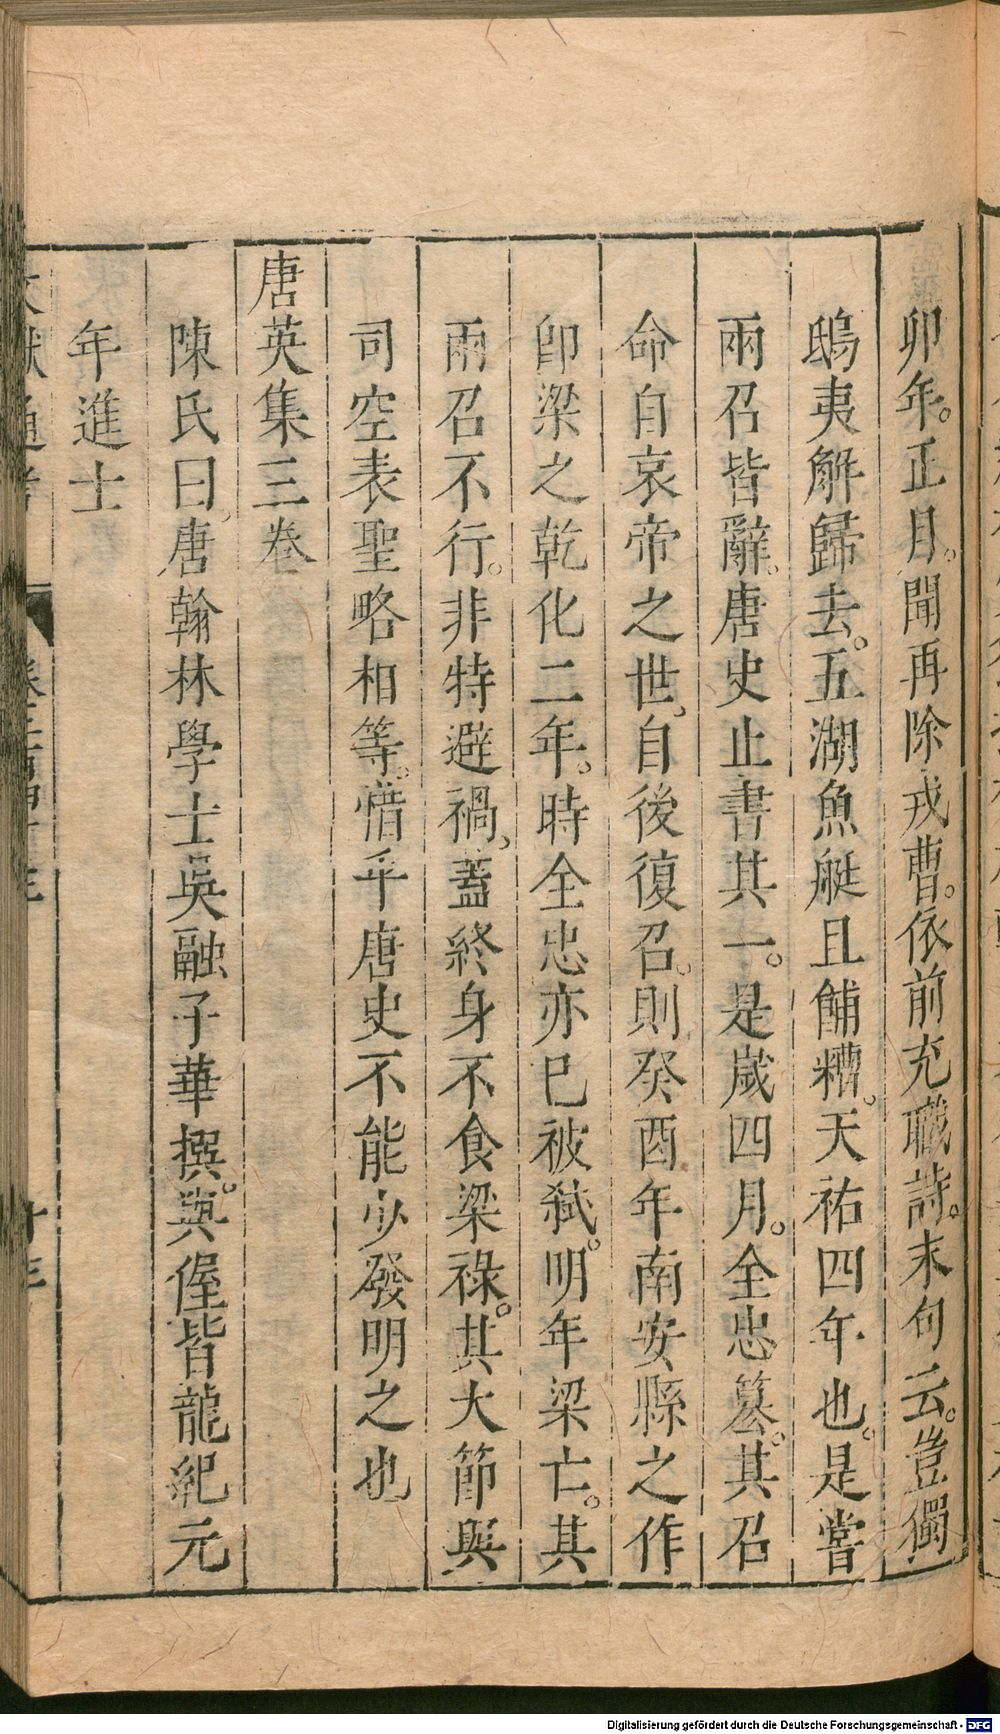 卯年。正月。聞再除戎曹。依前充職詩。末句云。豈獨
鴟夷解歸去。五湖魚艇且餔糟。天祐四年也。是嘗
兩召皆辭。唐史止書其一。是歲四月。全忠簒。其召
命自哀帝之世。自後復召。則癸酉年南安縣之作
卽梁之乾化二年。時全忠亦巳被弑。明年梁亡。其
兩召不行。非特避禍。蓋終身不食梁祿。其大節與
司空表聖略相等。惜乎唐史不能少發明之也
唐英集三卷
陳氏曰。唐翰林學士吳融子華撰。與偓皆龍紀元
年進士
文獻通考 卷二百四十三 十三
Digitalisierung gefördert durch die Deutsche Forschungsgemeinschaft - DFG